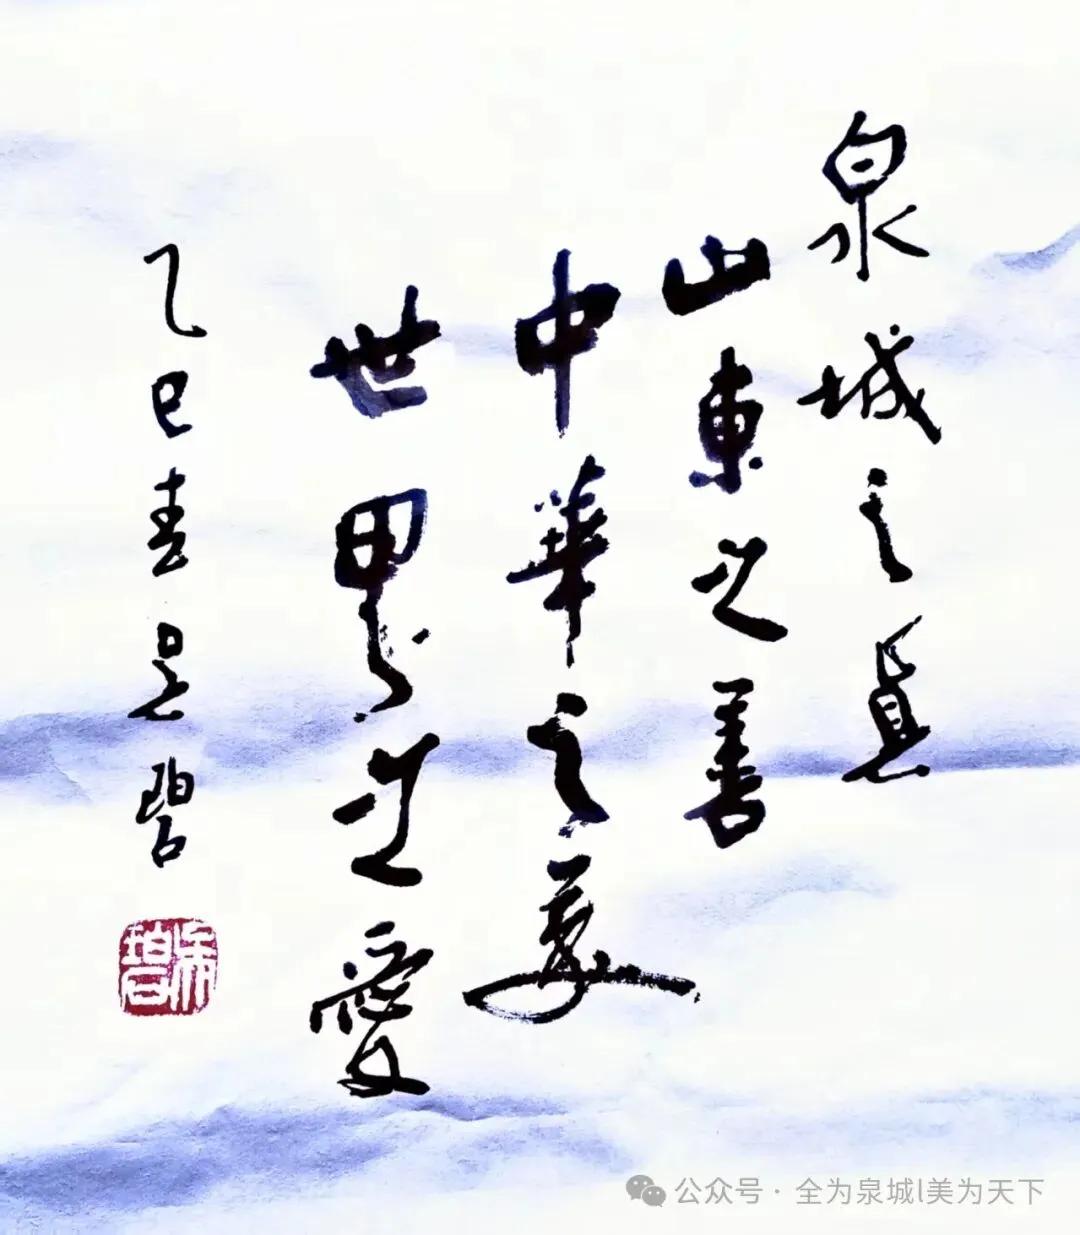 泉城之真
山東之善
中華之美
世界之愛
乙巳春 碧
公众号·全为泉城l美为天下